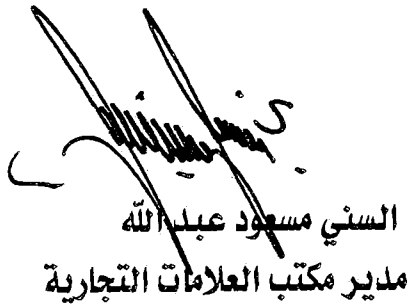 السني مسعود عبدالله
مدير مكتب العلامات التجارية